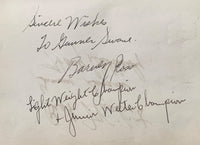 Sincere Wishes
To Gunner Swane.
Barney Ross
Light Weight Champion
+ Junior Welter Champion